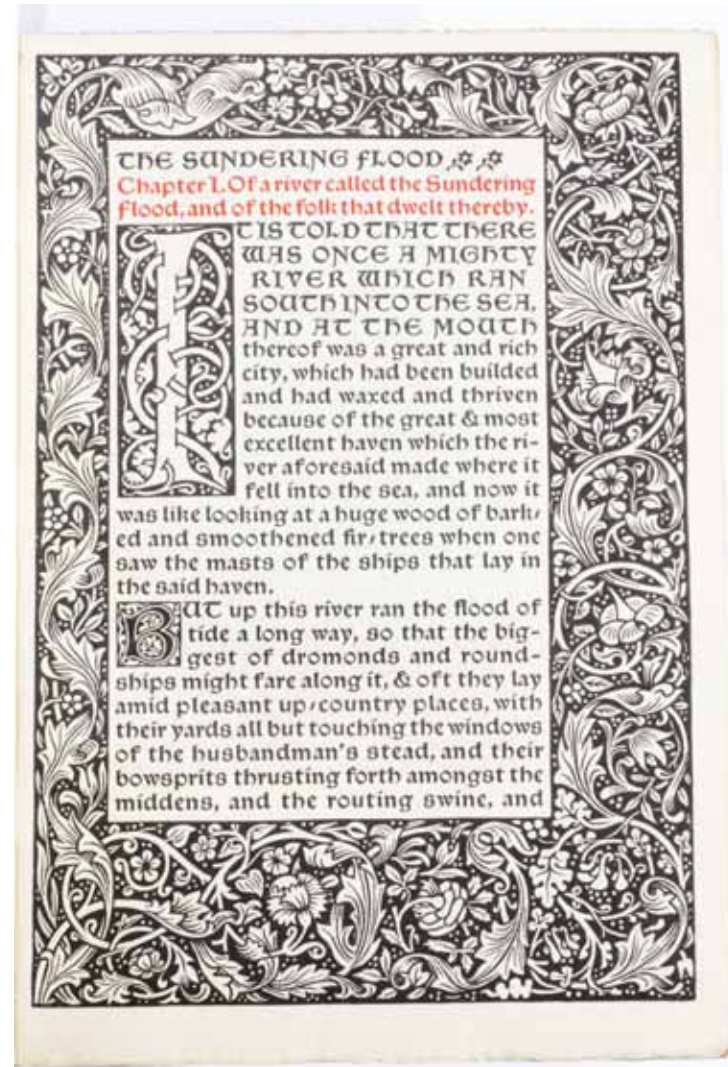 THE SUNDERING FLOOD
Chapter I. Of a river called the Sundering
Flood, and of the folk that dwelt thereby.
IT IS TOLD THAT THERE
WAS ONCE A MIGHTY
RIVER WHICH RAN
SOUTH INTO THE SEA,
AND AT THE MOUTH
thereof was a great and rich
city, which had been builded
and had waxed and thriven
because of the great & most
excellent haven which the ri-
ver aforesaid made where it
fell into the sea, and now it
was like looking at a huge wood of bark-
ed and smoothened fir-trees when one
saw the masts of the ships that lay in
the said haven.
BUT up this river ran the flood of
tide a long way, so that the big-
gest of dromonds and round-
ships might fare along it, & oft they lay
amid pleasant up-country places, with
their yards all but touching the windows
of the husbandman's stead, and their
bowsprits thrusting forth amongst the
middens, and the routing swine, and